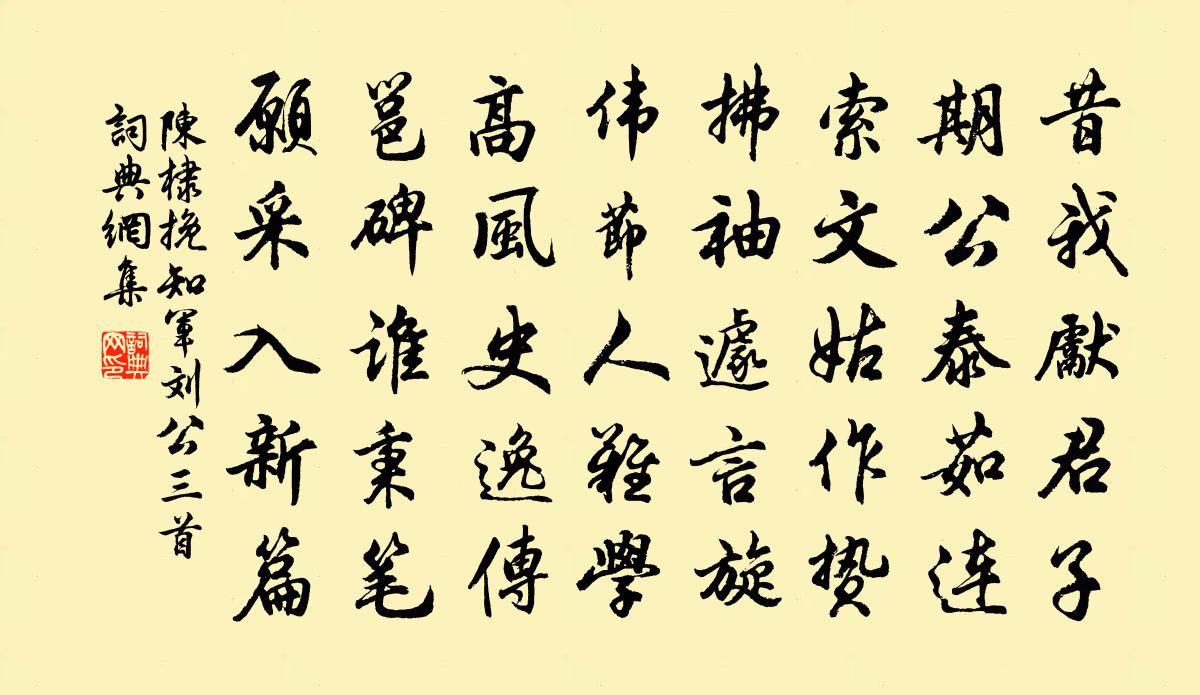 昔我獻君子
期公泰茹連
索文姑作贽
拂袖遽言旋
伟節人難學
高風史逸傳
邕碑谁秉笔
願采入新篇
陳棣挽知军刘公三首
詞典網集
詞典网印